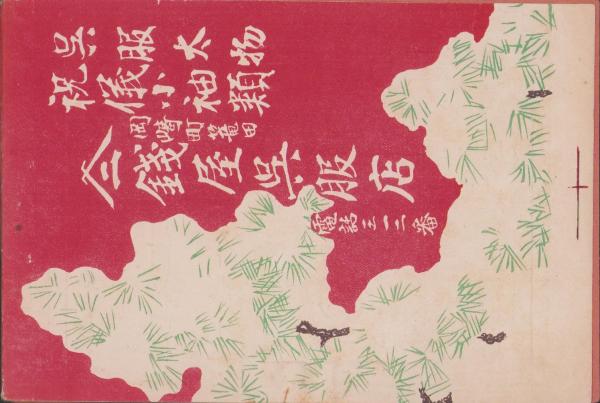 呉服太物
祝儀小袖類
岡崎町篭田
錢屋呉服店
電話三一二番